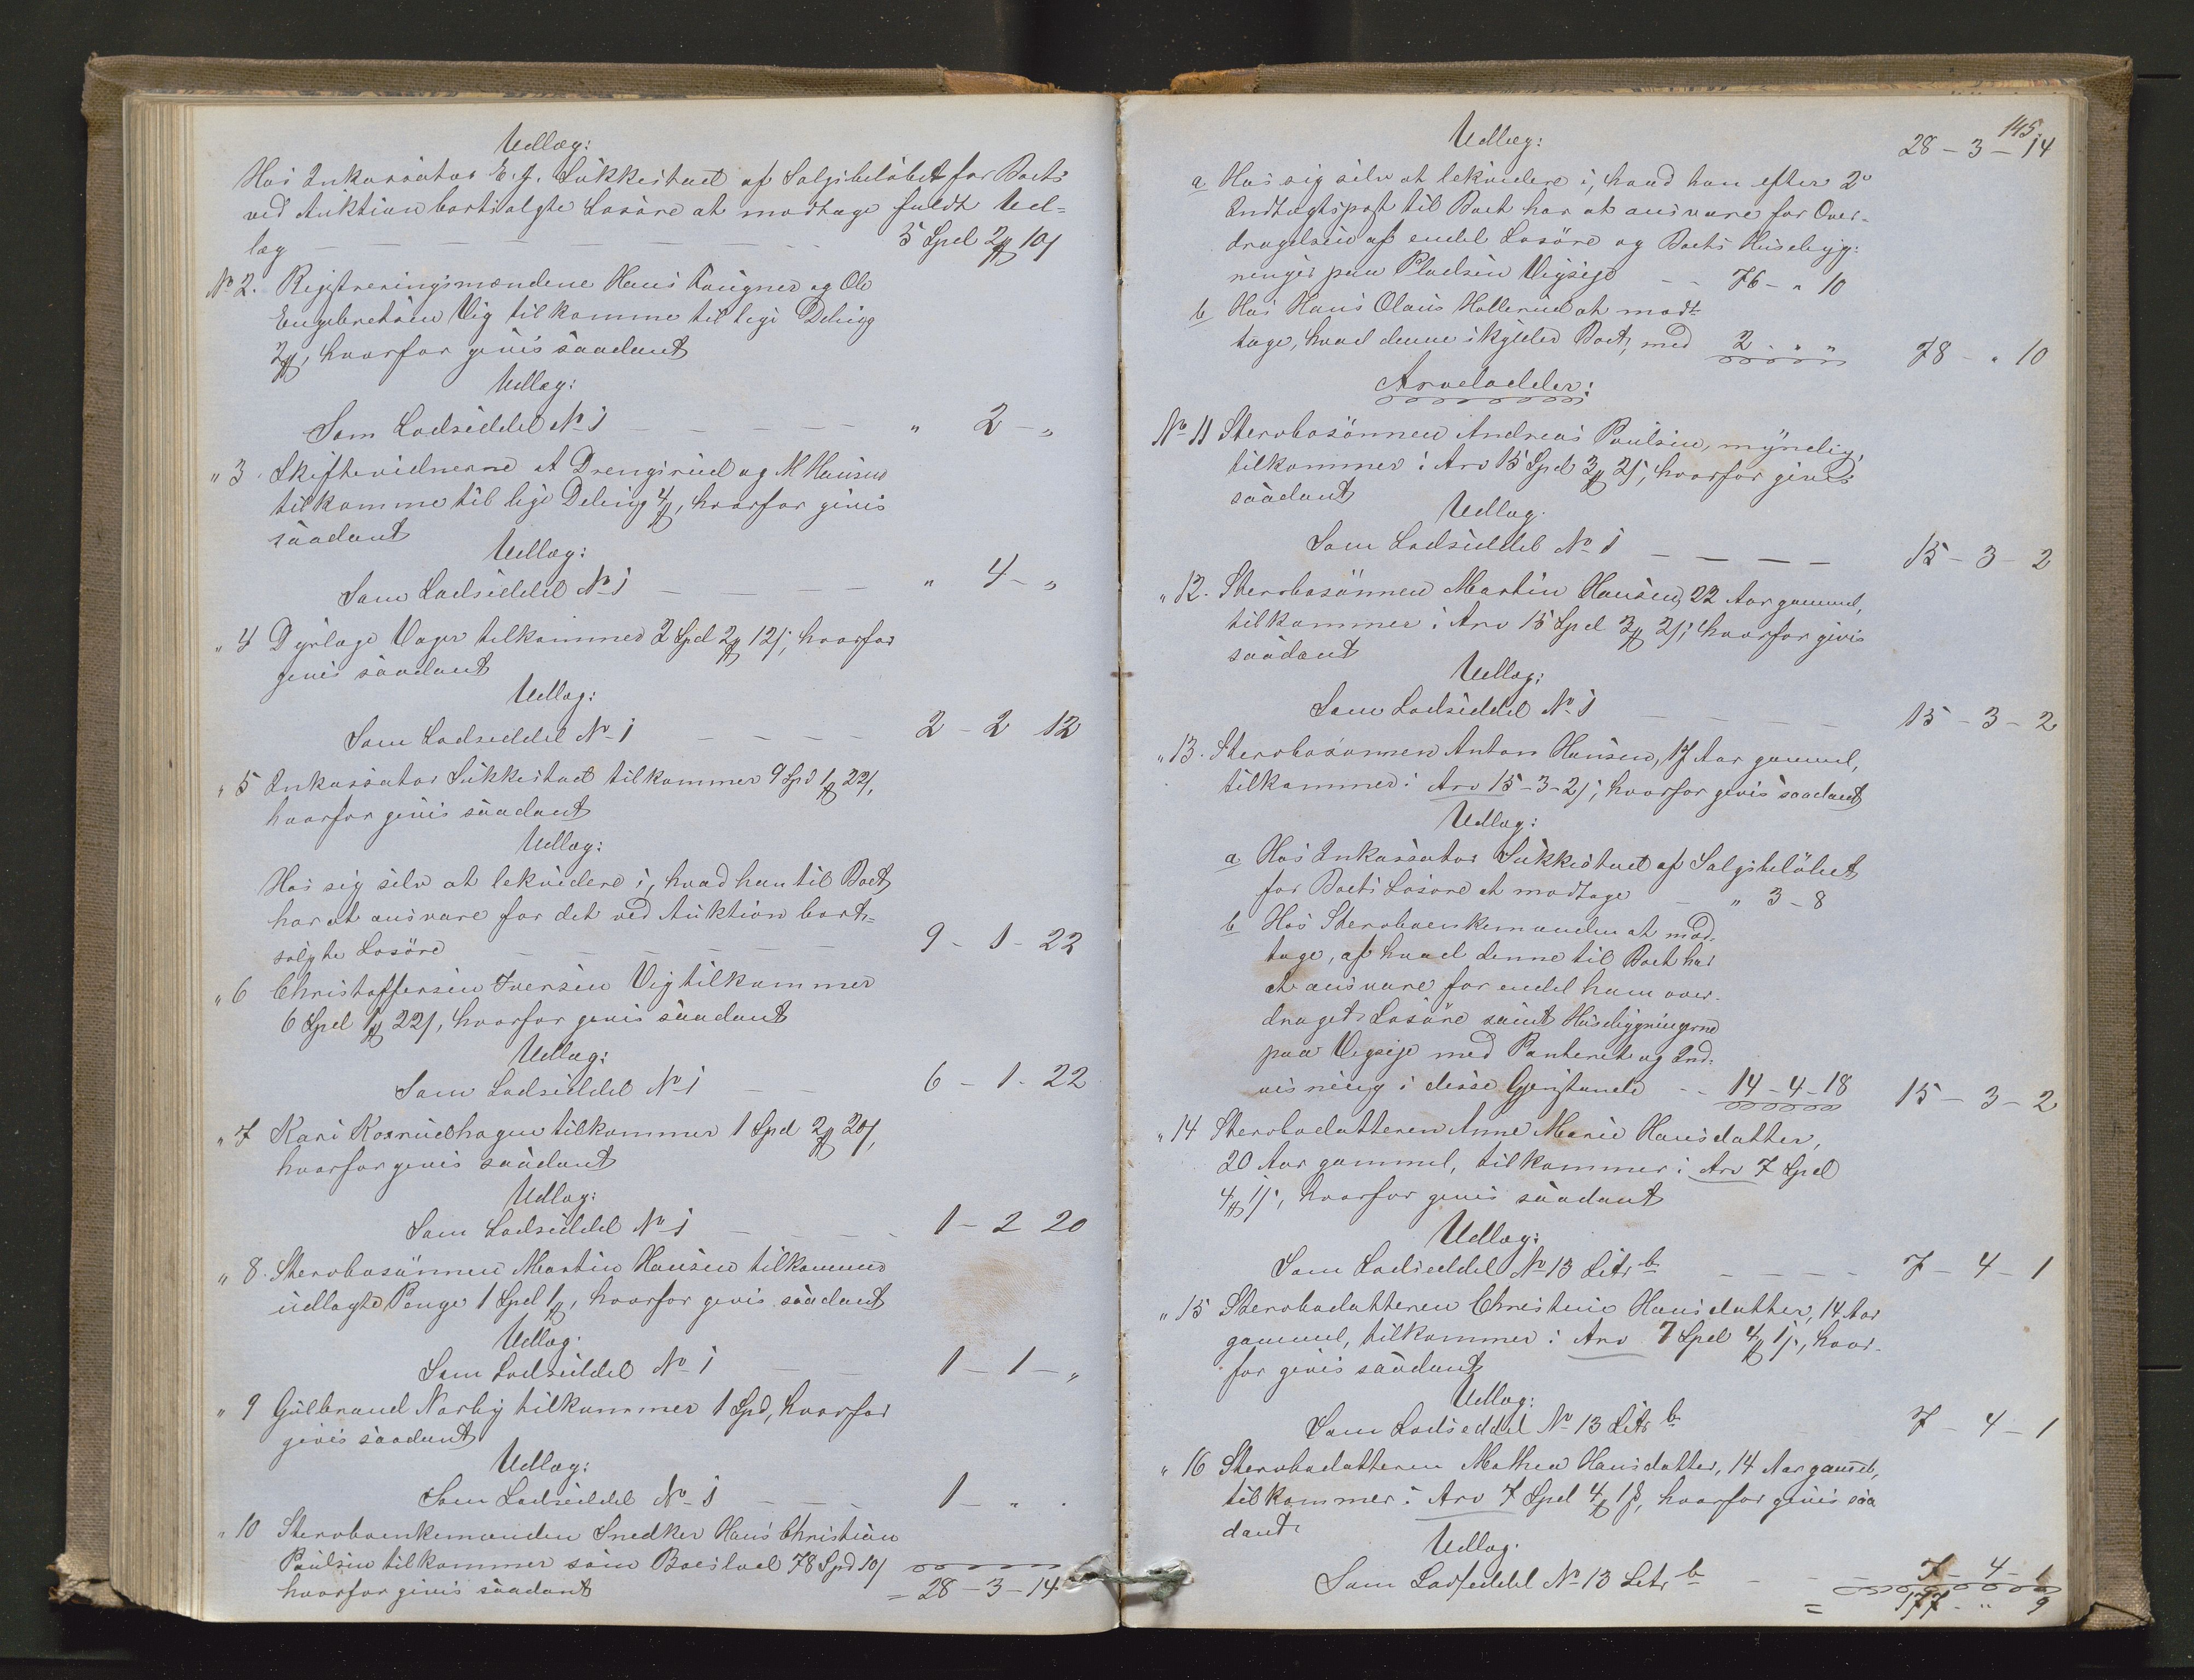 Udlæg:
Hos Inkassator E. J. Sukkestad af Salgsbeløbet for Boets
ved Auktion bortsolgte Løsøre at modtage fuldt Ud-
læg — — — — — — — 5 Spd 2 ℔ 10 ẞ
No 2. Registreringsmændene Hans Kongner og Ole
Engebretsen Vig tilkomme til lige Deling
2 ℔, hvorfor gives saadant
Udlæg:
Som Lodseddel No 1 — — — — — " 2 - "
" 3. Skiftevidnerne A Drengsrud og M Hansen
tilkomme til lige Deling 4 ℔, hvorfor gives
saadant
Udlæg:
Som Lodseddel No 1 — — — — " 4 - "
" 4 Dyrlæge Vager tilkommer 2 Spd 2 ℔ 12 ẞ, hvorfor
gives saadant
Udlæg:
Som Lodseddel No 1 — — — — 2 - 2 12
" 5 Inkassator Sukkestad tilkommer 9 Spd 1 ℔ 22 ẞ,
hvorfor gives saadant
Udlæg:
Hos sig selv at lekvidere i, hvad han til Boet
har at ansvare for det ved Auktion bort-
solgte Løsøre — — — — — 9 - 1 - 22
" 6 Christoffersen Iversen Vig tilkommer
6 Spd 1 ℔ 22 ẞ, hvorfor gives saadant
Udlæg:
Som Lodseddel No 1 — — 6 - 1 - 22
" 7 Kari Kosrudhagen tilkommer 1 Spd 2 ℔ 20 ẞ,
hvorfor gives saadant
Udlæg:
Som Lodseddel No 1 — — - 1 - 2 20
" 8. Stervbosønnen Martin Hansen tilkommer
udlagte Penge 1 Spd 1 ℔, hvorfor gives saadant
Udlæg.
Som Lodseddel No 1 — — 1 - 1 - "
" 9 Gulbrand Narby tilkommer 1 Spd, hvorfor
gives saadant
Udlæg:
Som Lodseddel No 1 — — - 1 - " .
" 10 Stervboenkemanden Snedker Hans Christian
Paulsen tilkommer som Boeslod 78 Spd 10 ẞ
hvorfor gives saadant = 28 - 3 - 14
145.
Udlæg: 28 - 3 - 14
a Hos sig selv at lekvidere i, hvad han efter 2den
Indtægtspost til Boet har at ansvare for Over-
dragelsen af endel Løsøre og Boets Husebyg-
ninger paa Pladsen Vigseje - - 76 - " 10
b Hos Hans Olaus Hollerud at mod-
tage, hvad denne skylder Boet, med 2 - " " 78 - " 10
Arvelodder:
No 11 Stervbosønnen Andreas Paulsen, myndig,
tilkommer i Arv 15 Spd 3 ℔ 2 ẞ, hvorfor gives
saadant
Udlæg.
Som Lodseddel No 1 — — — — 15 - 3 - 2
" 12. Stervbosønnen Martin Hansen, 22 Aar gammel,
tilkommer i Arv 15 Spd 3 ℔ 2 ẞ, hvorfor gives
saadant
Udlæg:
Som Lodseddel No 1 — — — — 15 - 3 - 2
" 13. Stervbosønnen Anton Hansen, 17 Aar gammel,
tilkommer i Arv 15 - 3 - 2 ẞ, hvorfor gives saadant
Udlæg:
a Hos Inkassator Sukkestad af Salgsbeløbet
for Boets Løsøre at modtage — " 3 - 8
b Hos Stervboenkemanden at mod-
tage, af hvad denne til Boet har
at ansvare for endel ham over-
draget Løsøre samt Husebygningerne
paa Vigseje med Panteret og Ind-
visning i disse Gjenstande - - 14 - 4 - 18 15 - 3 - 2
" 14 Stervbodatteren Anne Marie Hansdatter,
20 Aar gammel, tilkommer i Arv 7 Spd
4 ℔ 1 ẞ, hvorfor gives saadant
Udlæg:
Som Lodseddel No 13 Litr b — — — — 7 - 4 - 1
" 15 Stervbodatteren Christine Hansdatter, 14 Aar
gammel, tilkommer i Arv 7 Spd 4 ℔ 1 ẞ, hvor-
for gives saadant
Udlæg:
Som Lodseddel No 13 Litr b 7 - 4 - 1
" 16 Stervbodatteren Mathea Hansdatter, 14 Aar gamel,
tilkommer i Arv 7 Spd 4 ℔ 1 ẞ, hvorfor gives saa
dant
Udlæg.
Som Lodseddel No 13 Litr b — — — 7 - 4 - 1
= 177 - " 9